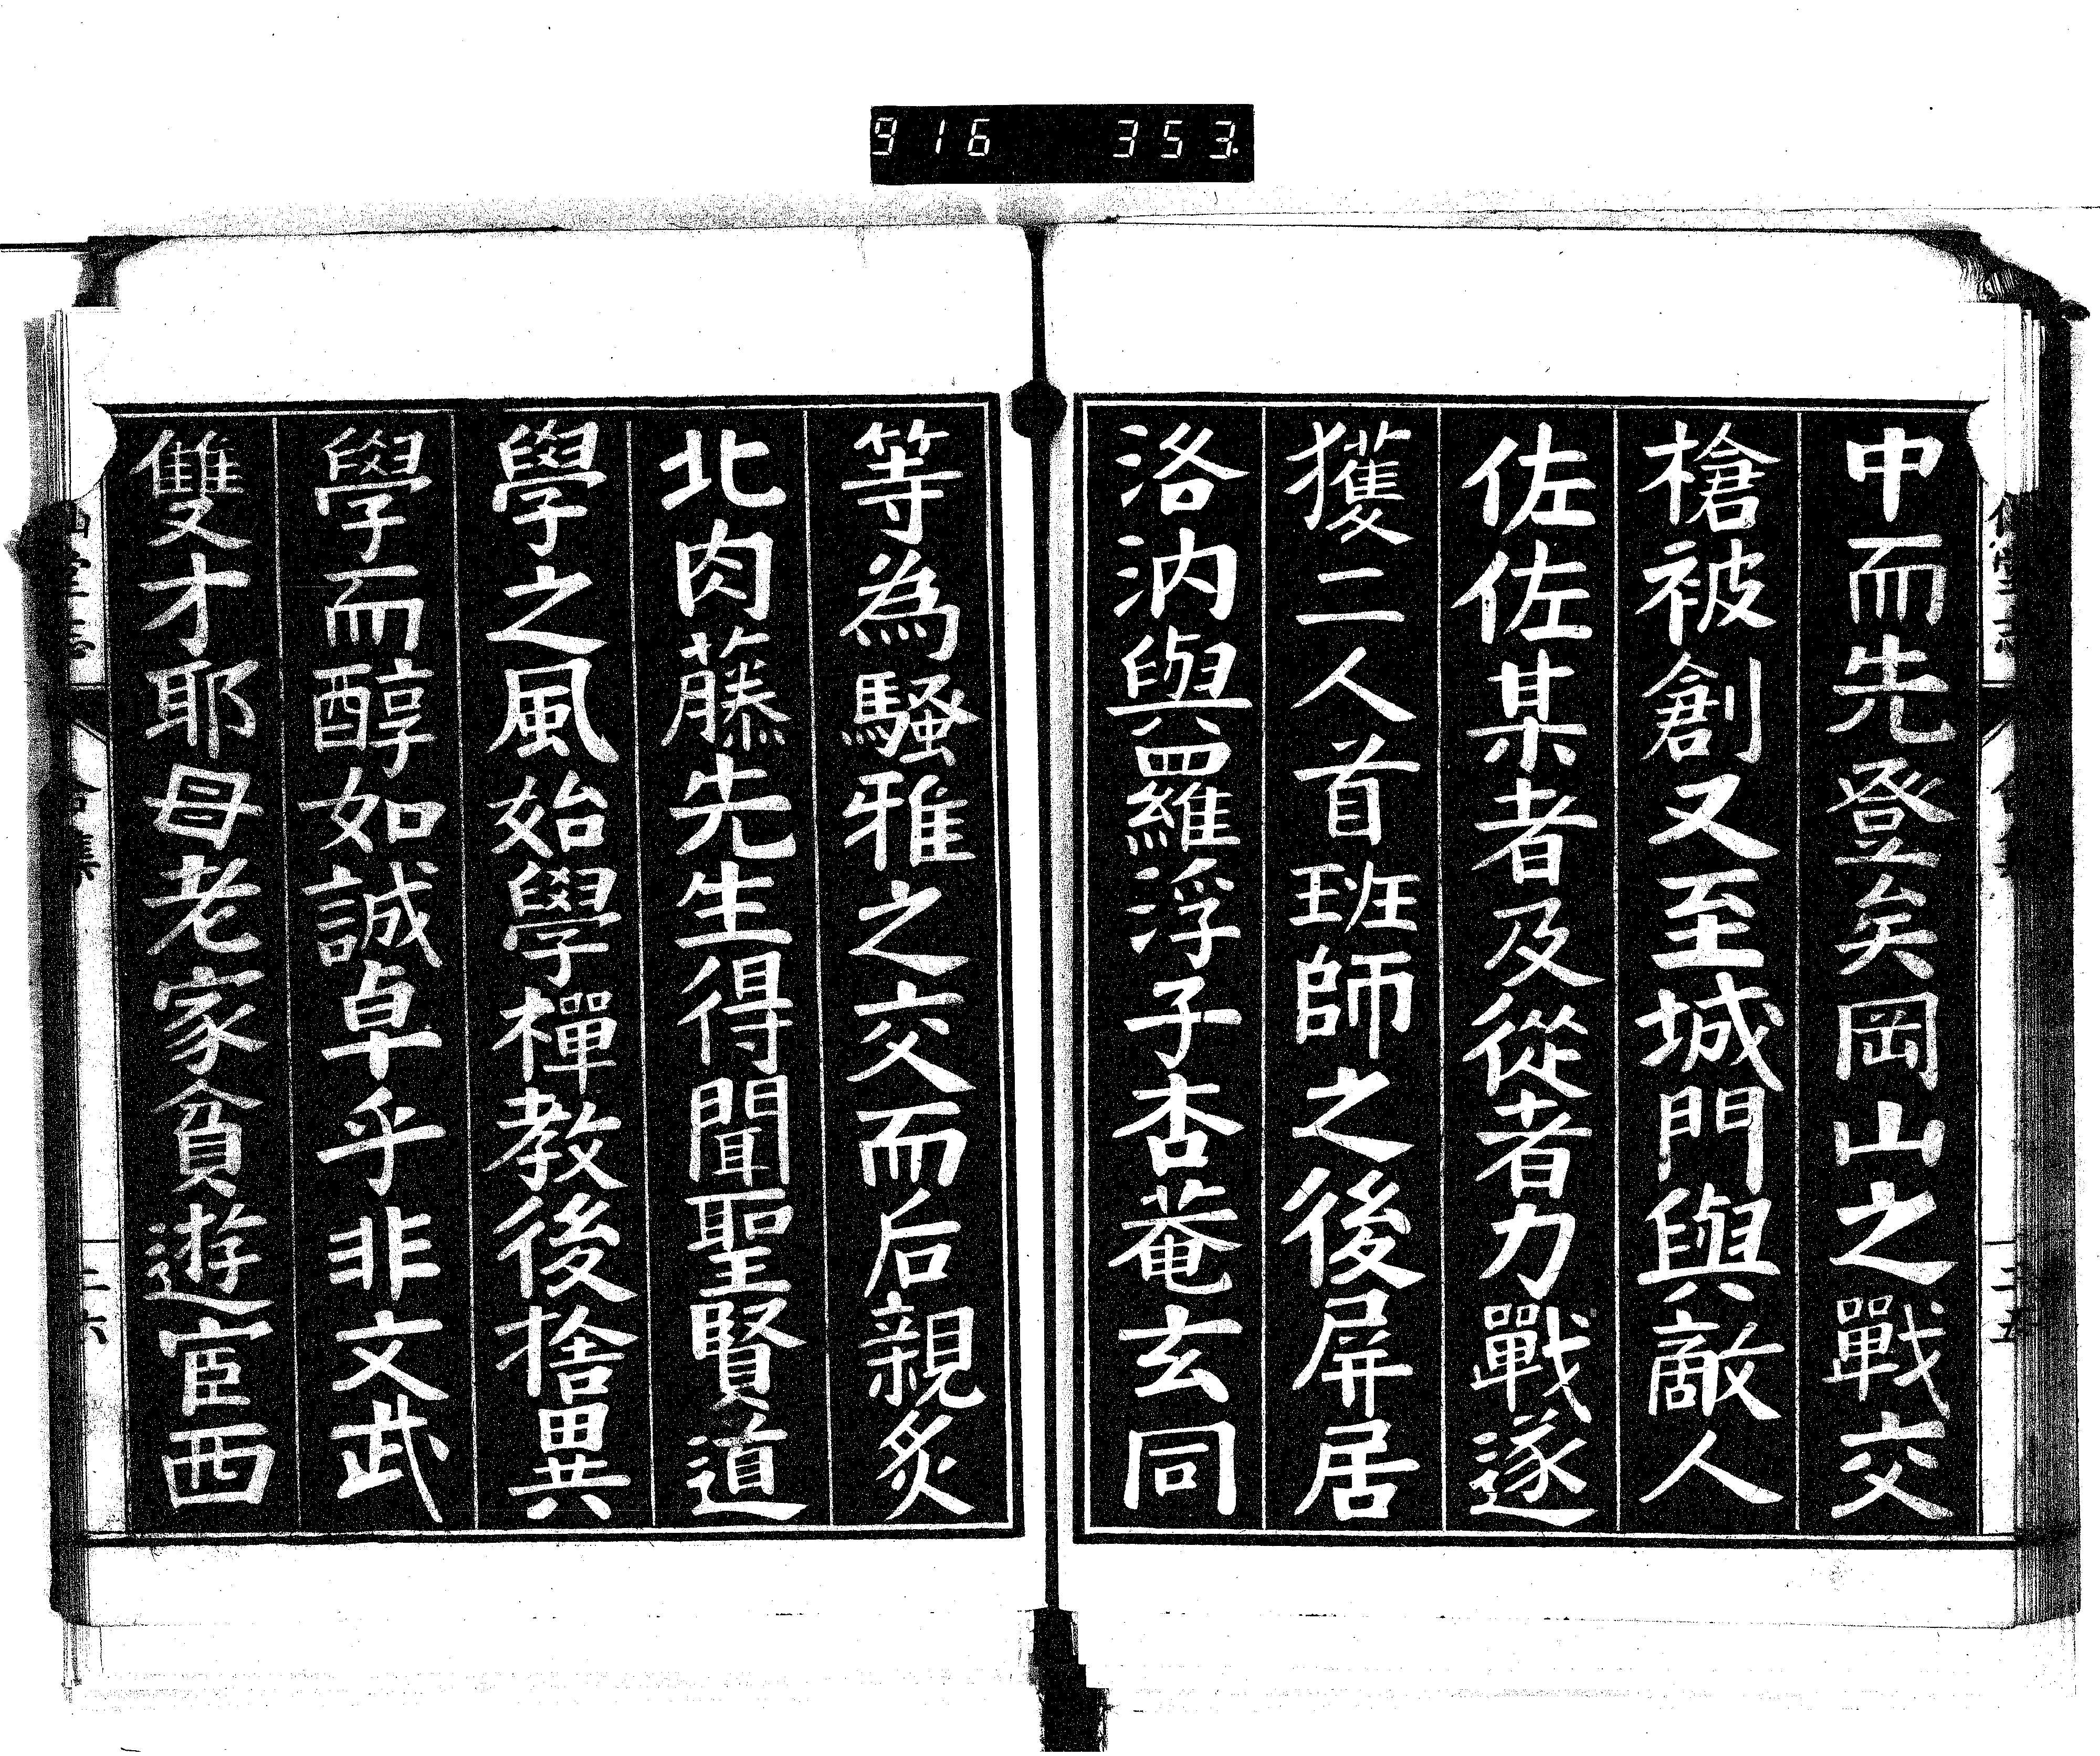 916 353.
申而先登矣岡山之戰交
槍被創又至城門與敵人
佐佐某者及從者力戰遂
獲二人首班師之後屏居
洛汭與羅浮子杏菴玄同
等為騷雅之交而后親炙
北肉藤先生得聞聖賢道
學之風始學禪教後捨異
學而醇如誠卓乎非文武
雙才耶母老家貧遊宦西